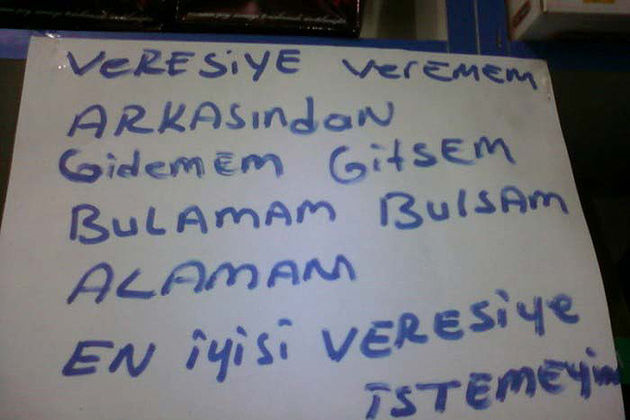 VERESİYE VEREMEM
ARKASINDAN
GİDEMEM GİTSEM
BULAMAM BULSAM
ALAMAM
EN İYİSİ VERESİYE
İSTEMEYİN